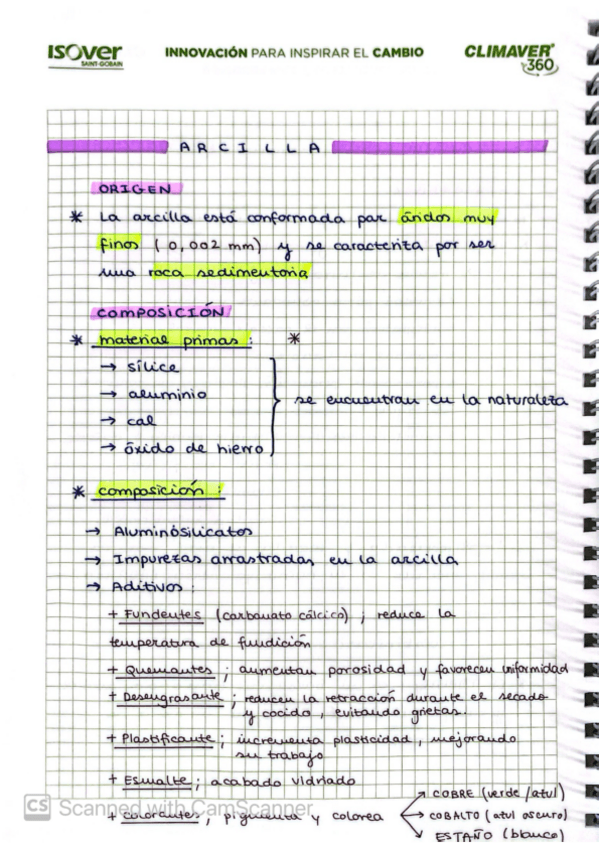 ISOVER
SAINT-GOBAIN
INNOVACIÓN PARA INSPIRAR EL CAMBIO
CLIMAVER®
360
ARCILLA
ORIGEN
* La arcilla está conformada par ándos muy
finos (0,002 mm) y se caracteriza por ser
una roca sedimentoria
COMPOSICIÓN
* material primas: *
→ sílice
→ aluminio
→ cal
→ óxido de hierro
se encuentran en la naturaleza
* composición:
→ Aluminósilicatos
→ Impurezas arrastradas en la arcilla
→ Aditivos:
+ Fundentes (carbonato cálcico); reduce la
temperatura de fundición
+ Quemantes; aumentan porosidad y favorecen uniformidad
+ Desengrasante; reducen la retracción durante el secado
y cocido, evitando grietas.
+ Plastificante; incrementa plasticidad, mejorando
su trabajo
+ Esmalte; acabado vidriado
+ colorantes; pigmenta y colorea
→ COBRE (verde/azul)
→ COBALTO (azul oscuro)
→ ESTAÑO (blanco)
CS Scanned with CamScanner